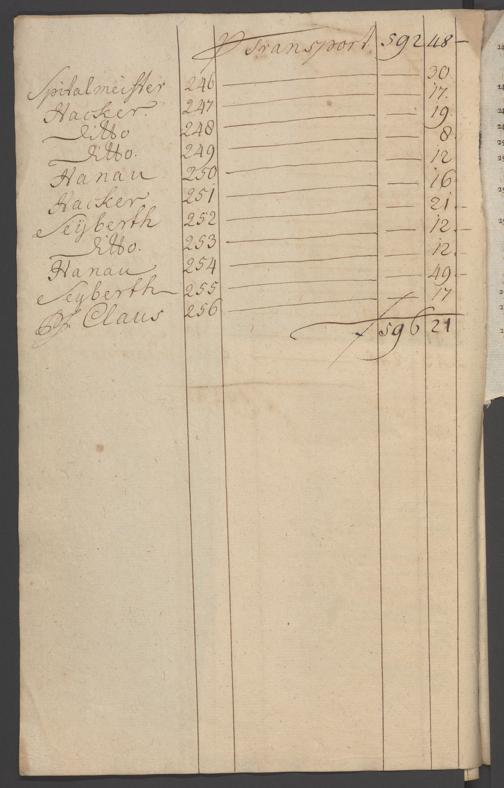 Transport 592 48 –
Spitalmeister 246 — 30
Hacker. 247 — 17.
Ditto 248 — 19
Ditto. 249 — 8
Hanau 250 — 12
Hacker 251 — 16
Seyberth 252 — 21 –
Ditto. 253 — 12 –
Hanau 254 — 12
Seyberth 255 — 49 –
Claus 256 — 17
f 596 21